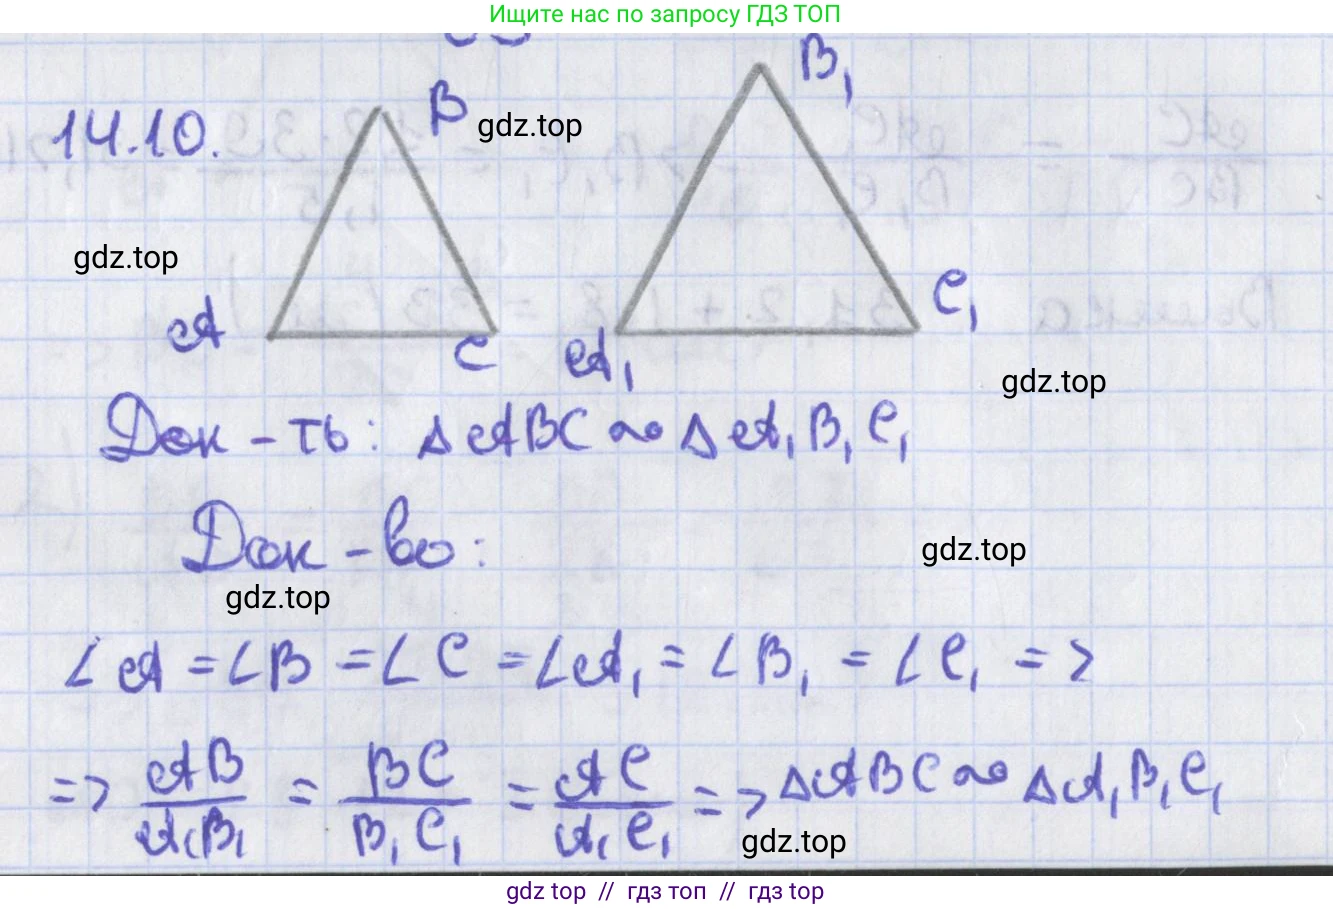 Ищите нас по запросу ГДЗ ТОП
14.10.
B
gdz.top
B₁
gdz.top
A
C
A₁
C₁
gdz.top
Док-ть: ΔABC ∾ ΔA₁B₁C₁
Док-во:
gdz.top
gdz.top
∠A = ∠B = ∠C = ∠A₁ = ∠B₁ = ∠C₁ =>
=> AB/A₁B₁ = BC/B₁C₁ = AC/A₁C₁ => ΔABC ∾ ΔA₁B₁C₁
gdz.top
gdz top // гдз топ // гдз top